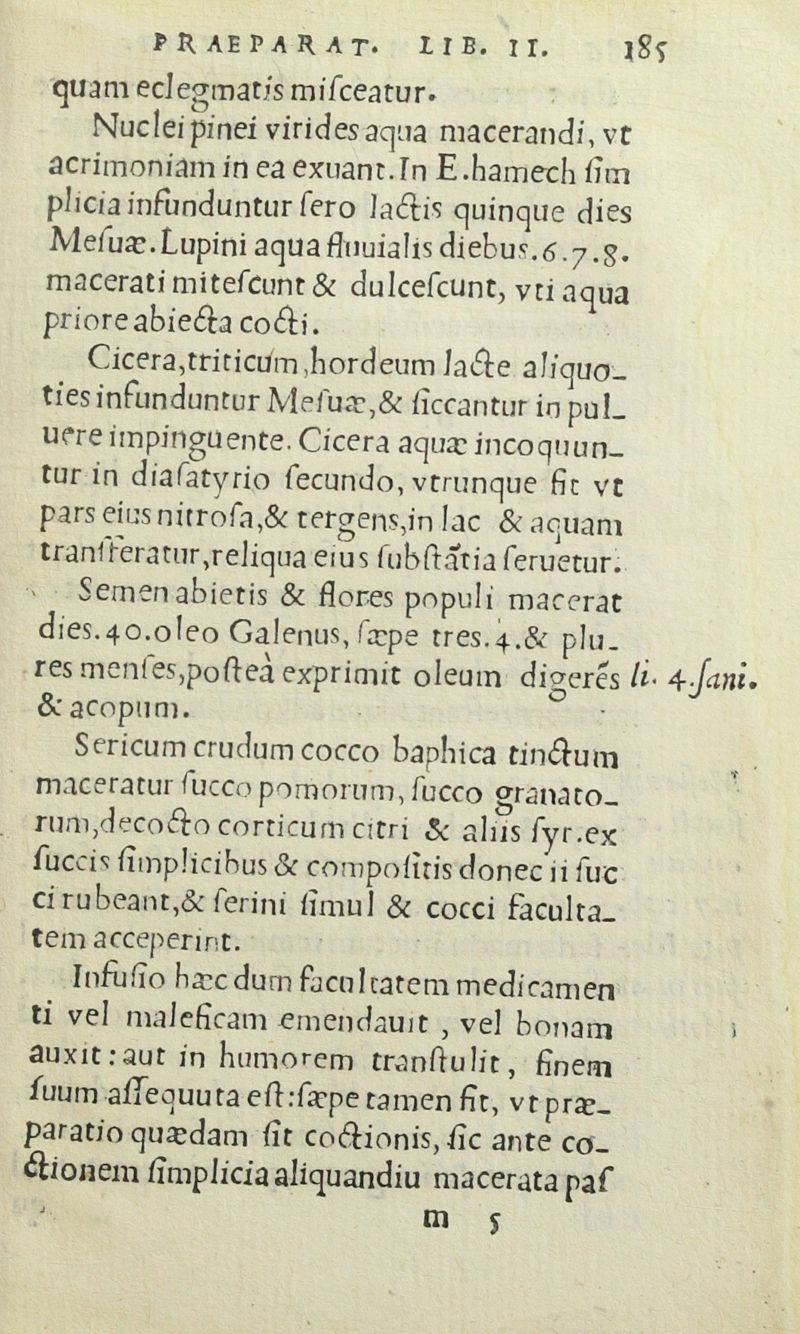 PRAEPARAT. LIB. II. 185
quam eclegmatis miſceatur.
Nuclei pinei virides aqua macerandi, vt
acrimoniam in ea exuant. In E.hamech ſim
plicia infunduntur ſero lactis quinque dies
Meſuæ. Lupini aqua fluuialis diebus.6.7.8.
macerati miteſcunt & dulceſcunt, vti aqua
priore abiecta cocti.
Cicera,triticum,hordeum lacte aliquo-
ties infunduntur Meſuæ,& ſiccantur in pul-
uere impinguente. Cicera aquæ incoquun-
tur in diaſatyrio ſecundo, vtrunque fit vt
pars eius nitroſa,& tergens,in lac & aquam
tranſferatur,reliqua eius ſubſtãtia ſeruetur.
Semen abietis & flores populi macerat
dies.40.oleo Galenus, ſæpe tres.4.& plu-
res menſes,poſteà exprimit oleum digerẽs li. 4.ſani.
& acopum.
Sericum crudum cocco baphica tinctum
maceratur ſucco pomorum, ſucco granato-
rum,decocto corticum citri & aliis ſyr.ex
ſuccis ſimplicibus & compoſitis donec ii ſuc
ci rubeant,& ſerini ſimul & cocci faculta-
tem acceperint.
Infuſio hæc dum facultatem medicamen
ti vel maleficam emendauit , vel bonam
auxit: aut in humorem tranſtulit, finem
ſuum aſſequuta eſt:ſæpe tamen fit, vt præ-
paratio quædam ſit coctionis, ſic ante co-
ctionem ſimplicia aliquandiu macerata paſ
m 5